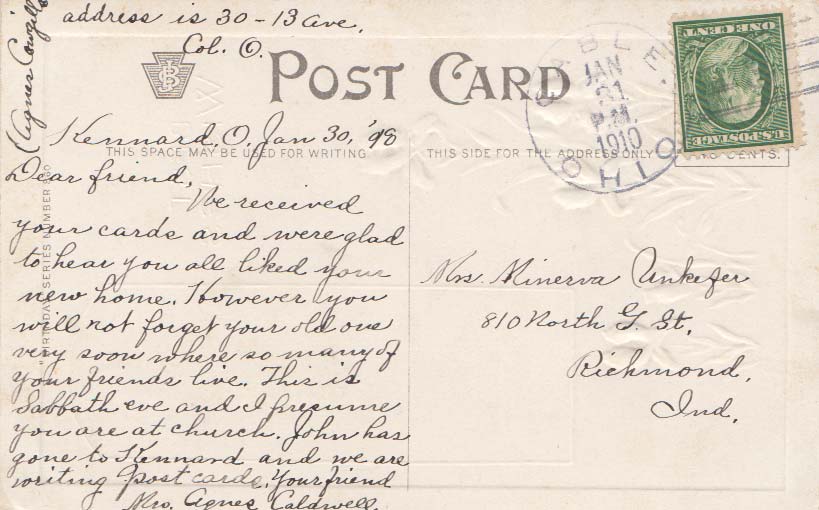 (Agnes Cowgill's
address is 30-13 ave.
Col. O.
POST CARD
CABLE
JAN
31
P.M.
1910
OHIO
U.S. POSTAGE
ONE CENT
Kennard, O. Jan 30,
THIS SPACE MAY BE USED FOR WRITING
THIS SIDE FOR THE ADDRESS ONLY
CENTS.
Dear friend,
We received
your cards and were glad
to hear you all liked your
new home. However you
will not forget your old one
very soon where so many of
your friends live. This is
Sabbath eve and I presume
you are at church. John has
gone to Kennard and we are
writing post cards. Your friend
Mrs. Agnes Caldwell.
Mrs. Minerva Unkefer
810 North G. St.
Richmond,
Ind.
BIRTHDAY SERIES NUMBER